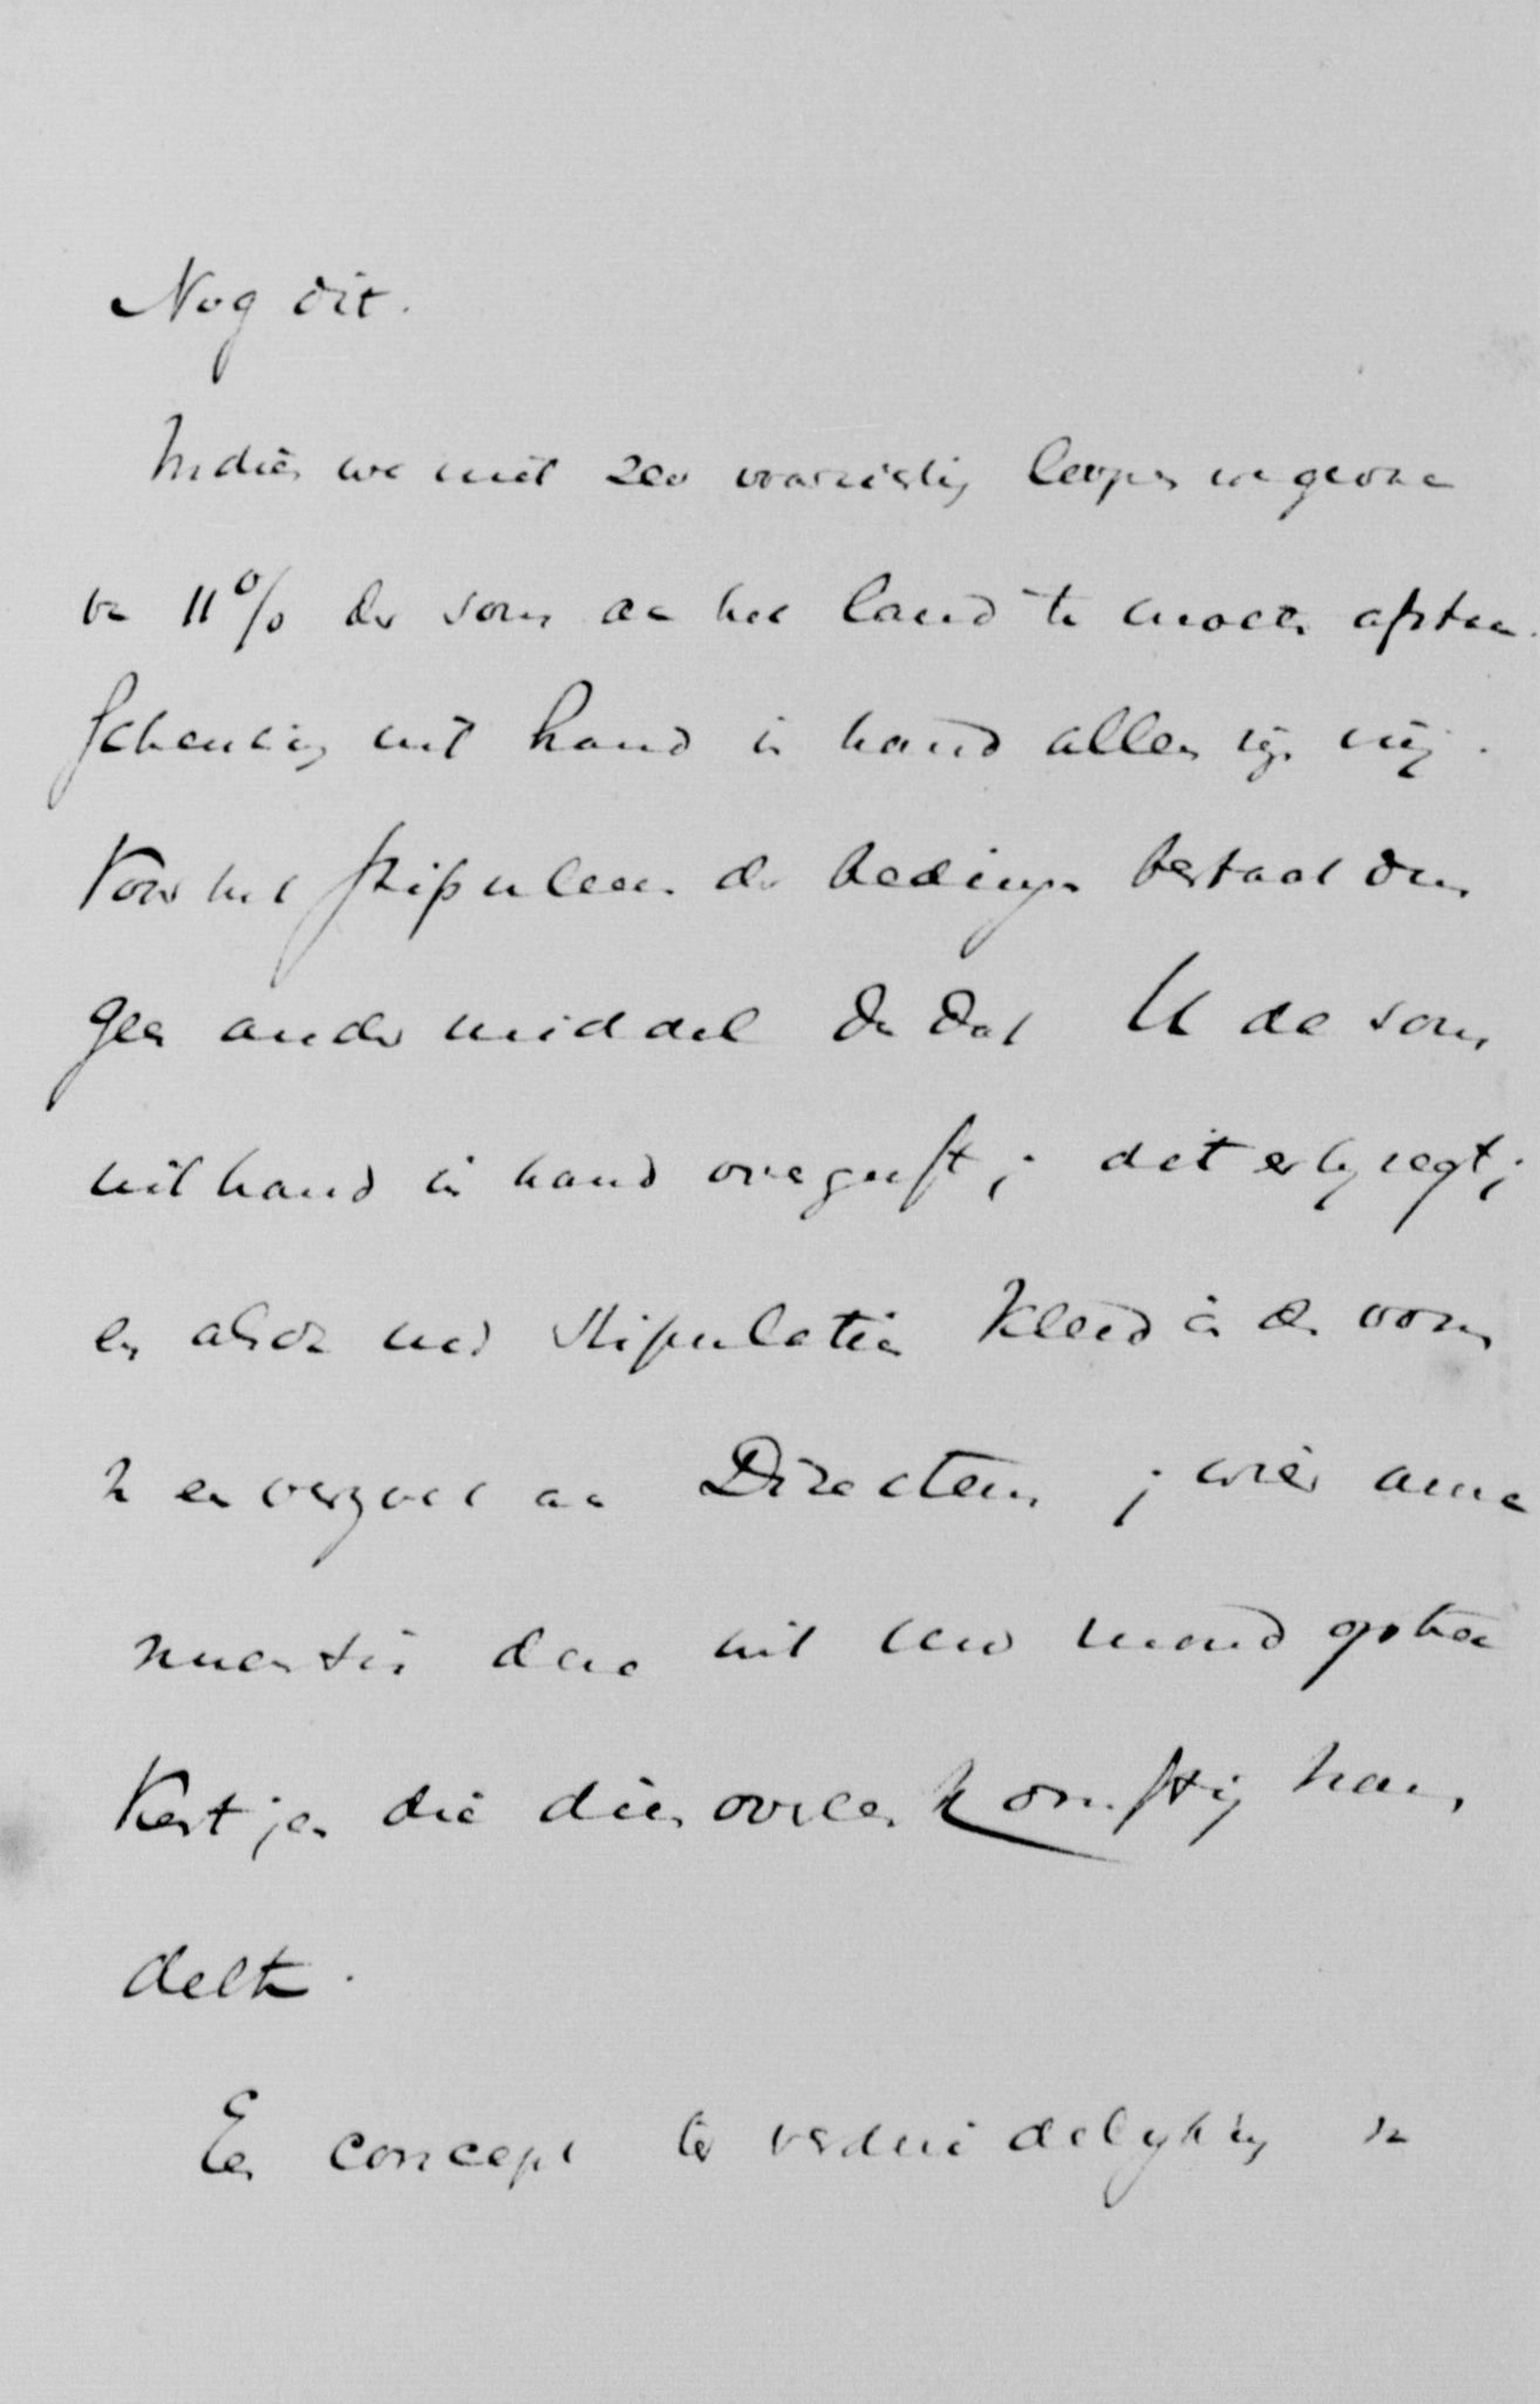 Nog dit.
Indien we niet zeer voorzichtig loopen we gevaar
van 11% der som aan het land te moeten afstaan.
Schenking uit hand in hand alleen is vrij.
Voor het stipuleeren der bedingen bestaat dus
geen ander middel dan dat U de som
uit hand in hand overgeeft; dit erbij zegt;
en alsdan uw stipulatien kleed in den vorm
van een verzoek aan Directeuren; wier
dan uit uw mond
die dien overeenkomstig han
delen.
Een concept ter verduidelijking